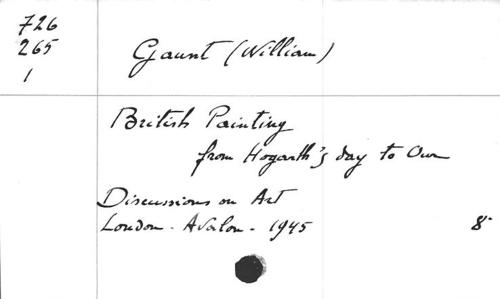 726
265
1
Gaunt (William)
British Painting
from Hogarth's day to Our
Discussions on Art
London - Avalon - 1945 8°